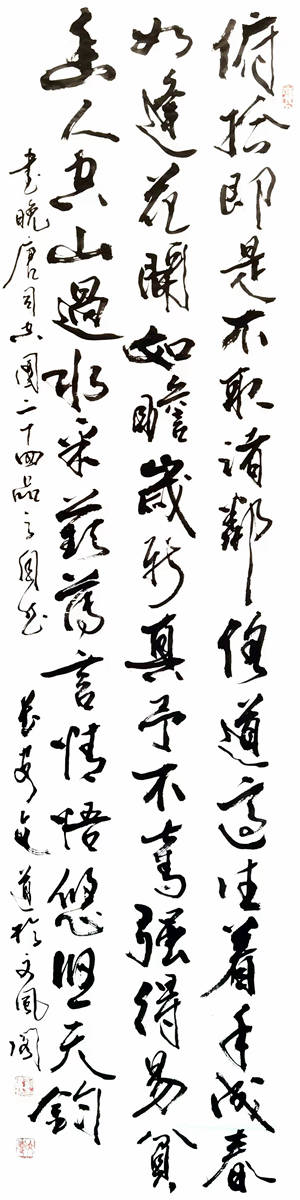 俯拾即是不取諸鄰俱道適往着手成春
如逢花開如瞻歲新真予不奪强得易貧
幽人空山過水采蘋薄言情悟悠悠天鈞
書晚唐司空圖二十四品之自然 道於文風閣